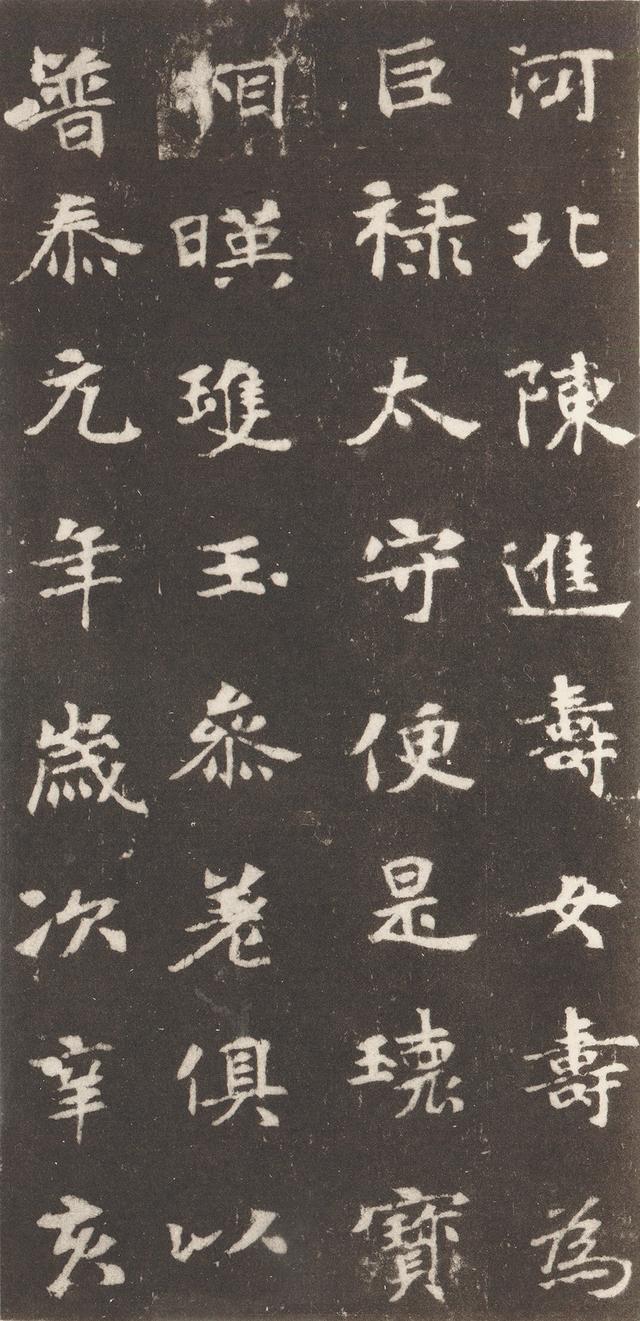 河北陳進壽女壽為
巨禄太守便是瓌寶
相暎瓊玉參差俱以
普泰元年歲次辛亥